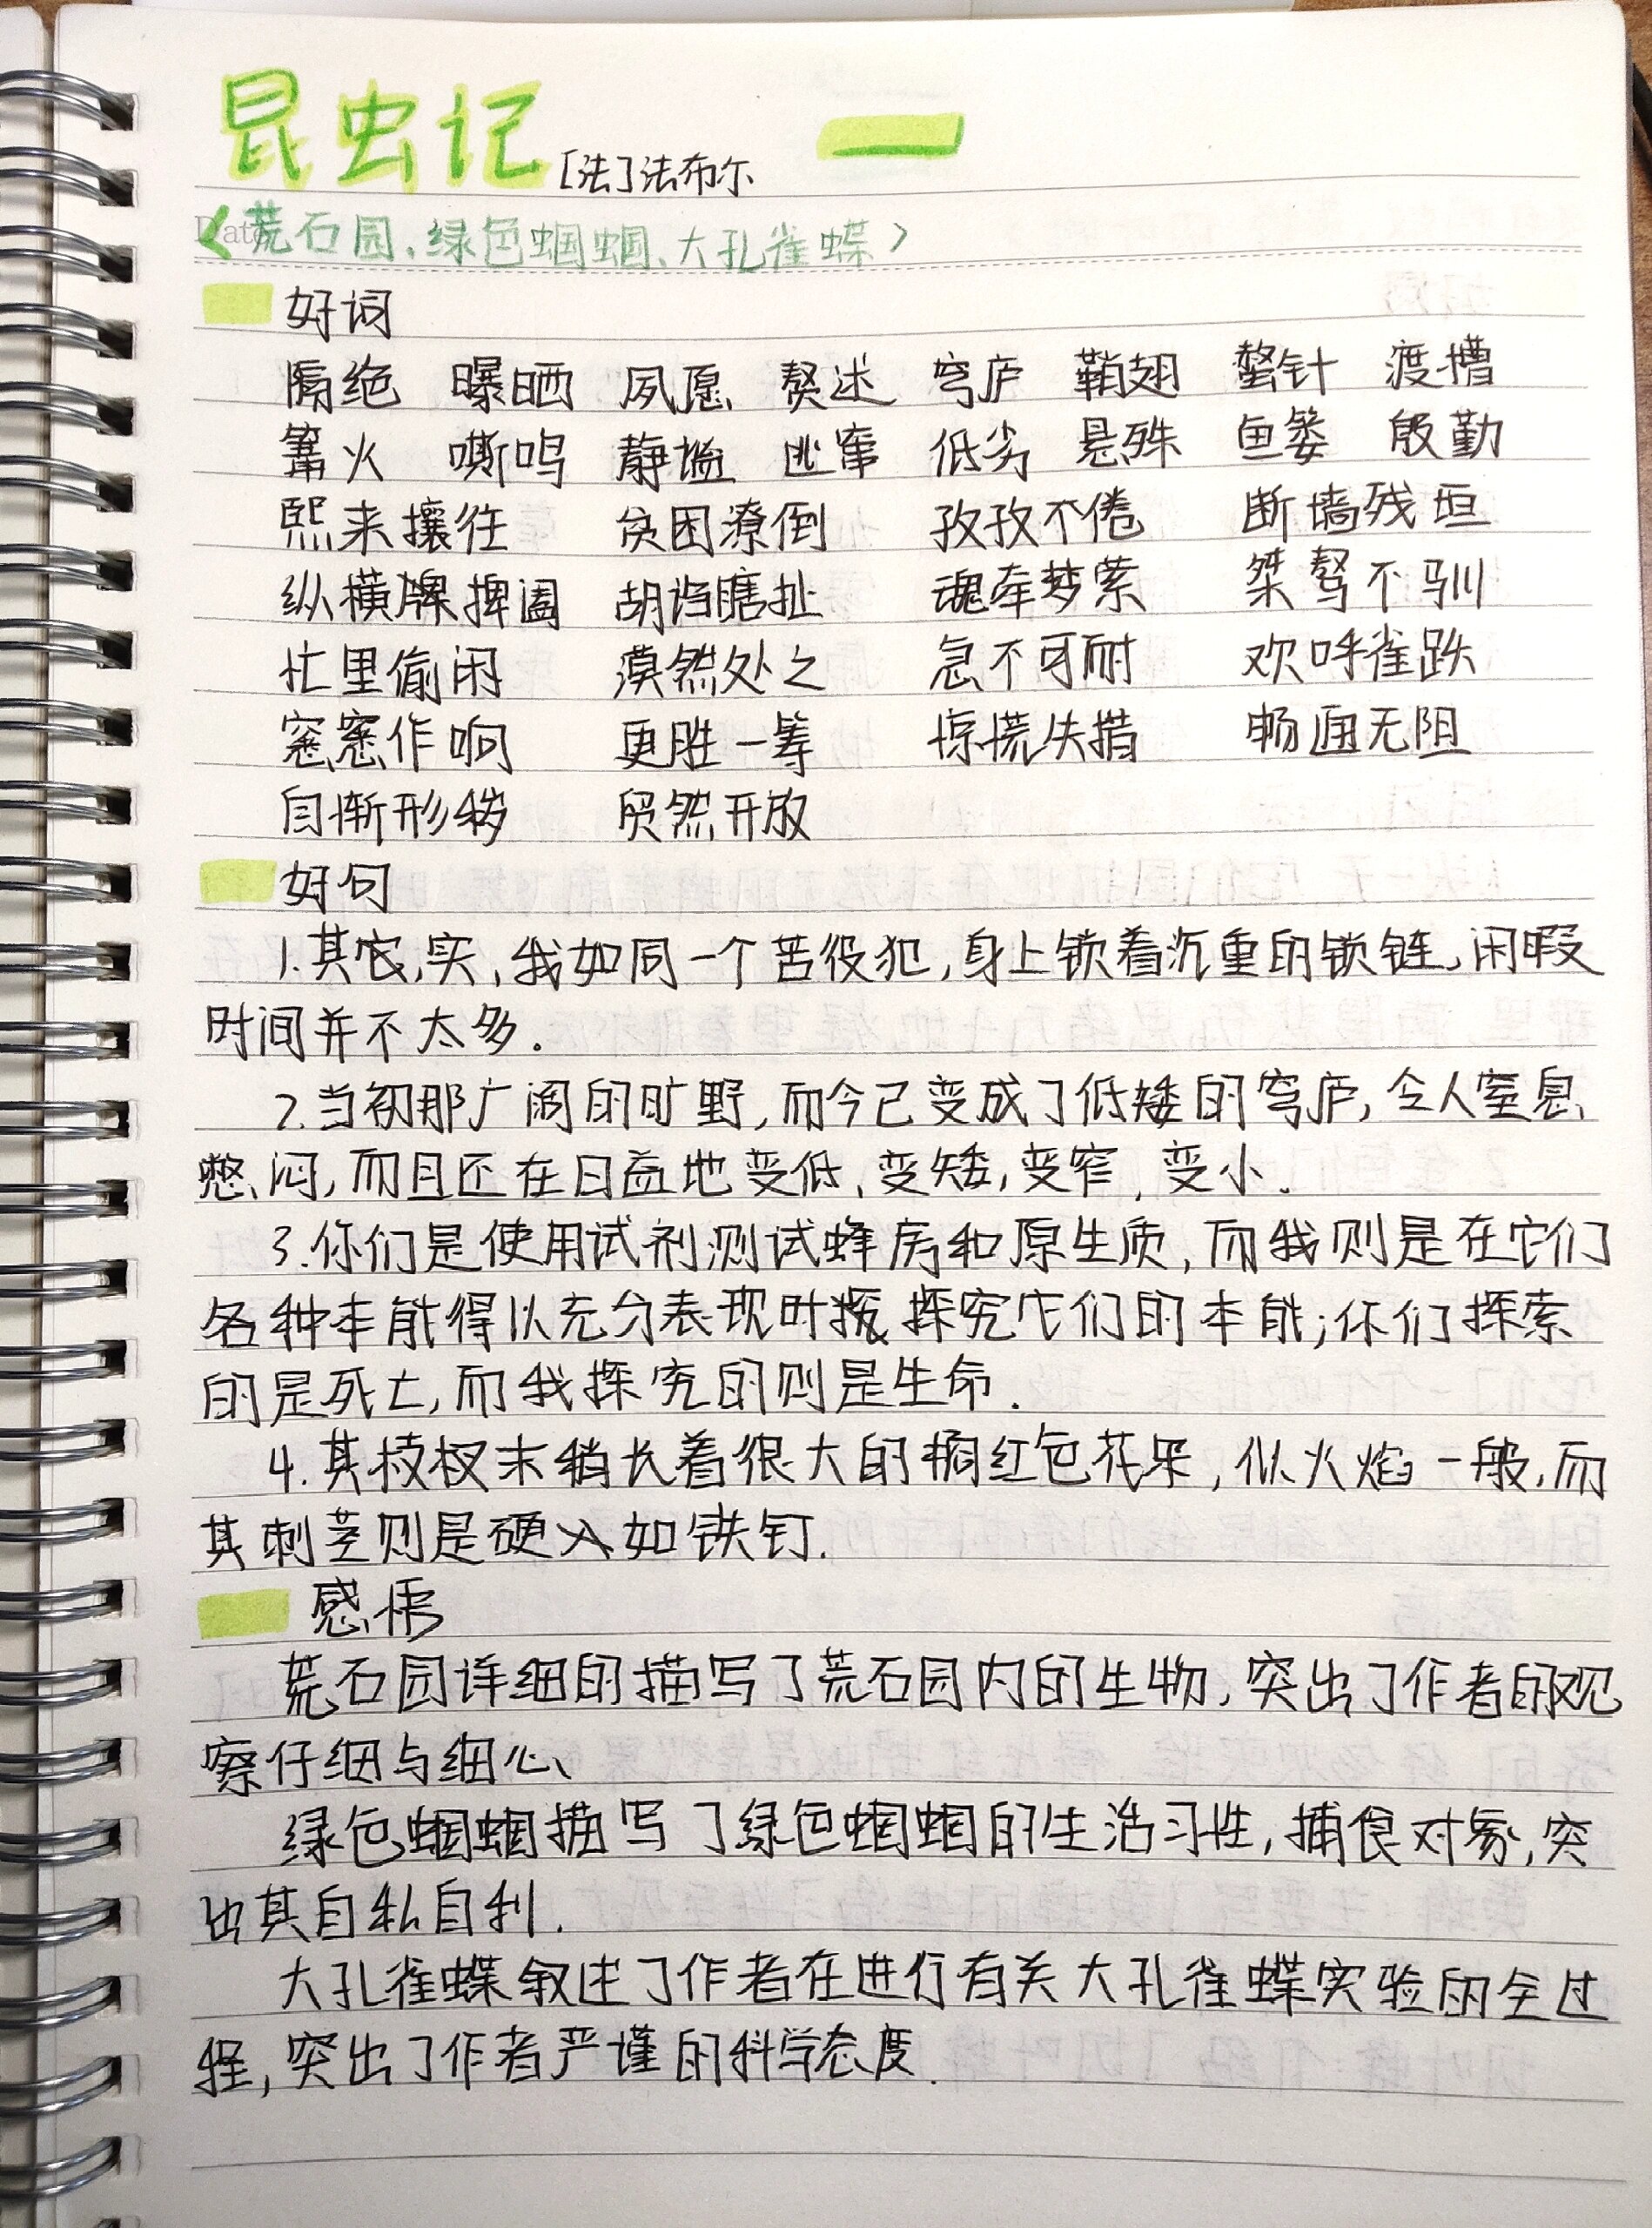 昆虫记 [法]法布尔 一
Date
<荒石园、绿色蝈蝈、大孔雀蝶>
好词
隔绝 曝晒 夙愿 赘述 穹庐 鞘翅 螯针 渡槽
篝火 嘶鸣 静谧 逃窜 低劣 悬殊 鱼篓 殷勤
熙来攘往 贫困潦倒 孜孜不倦 断墙残垣
纵横捭阖 胡诌瞎扯 魂牵梦萦 桀骜不驯
忙里偷闲 漠然处之 急不可耐 欢呼雀跃
窸窸作响 更胜一筹 惊慌失措 畅通无阻
自惭形秽 贸然开放
好句
1.其实,我如同一个苦役犯,身上锁着沉重的锁链,闲暇
时间并不太多.
2.当初那广阔的旷野,而今已变成了低矮的穹庐,令人窒息、
憋闷,而且还在日益地变低、变矮,变窄,变小.
3.你们是使用试剂测试蜂房和原生质,而我则是在它们
各种本能得以充分表现时探究它们的本能;你们探索
的是死亡,而我探究的则是生命.
4.其枝杈末稍长着很大的橘红色花朵,似火焰一般,而
其刺茎则是硬如铁钉.
感悟
荒石园详细的描写了荒石园内的生物,突出了作者的观
察仔细与细心、
绿色蝈蝈描写了绿色蝈蝈的生活习性,捕食对象,突
出其自私自利.
大孔雀蝶叙述了作者在进行有关大孔雀蝶实验的全过
程,突出了作者严谨的科学态度.